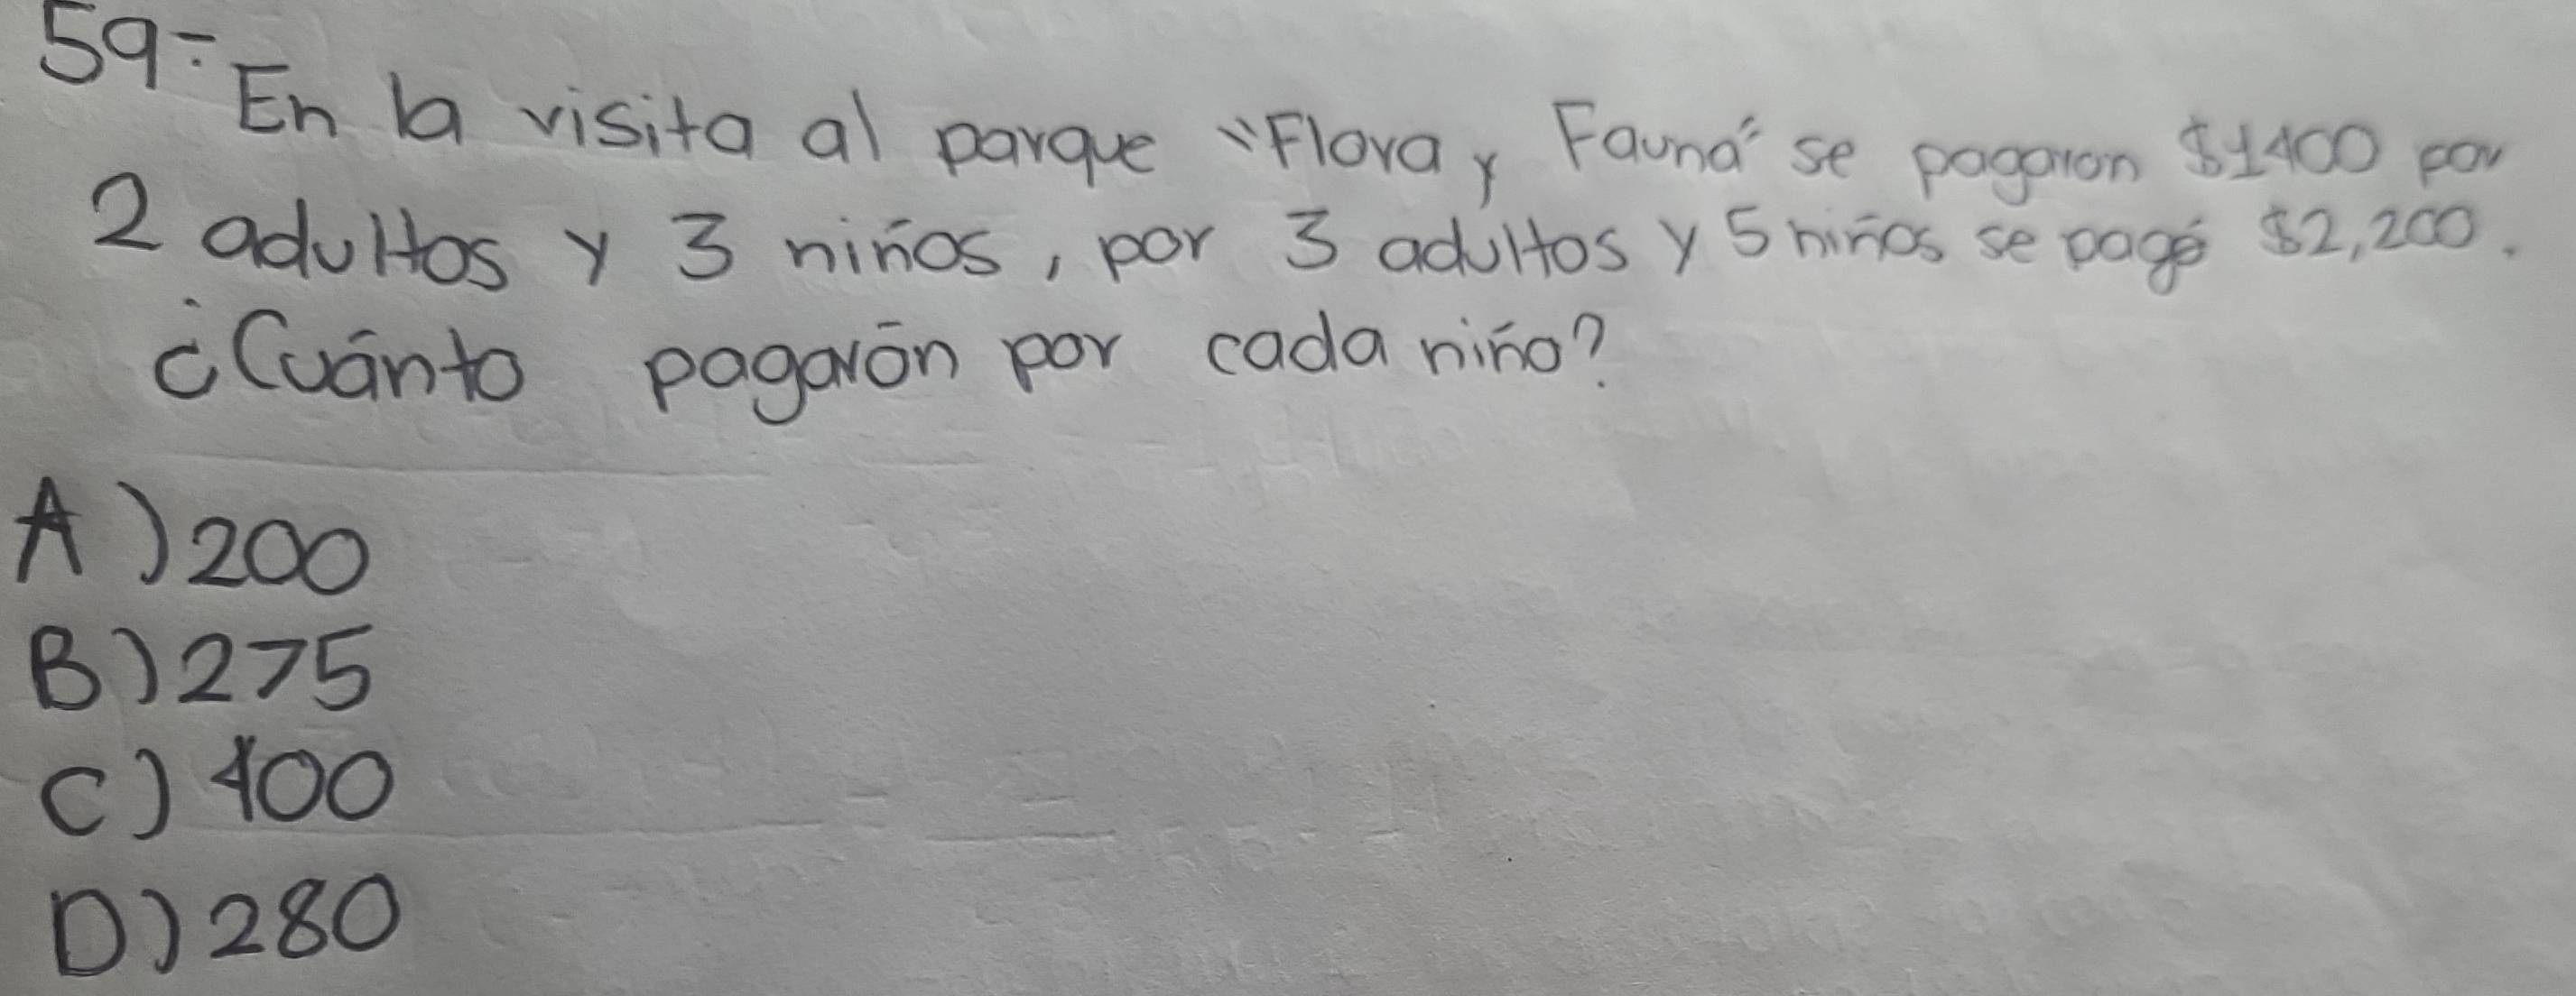 59-.
En la visita al parque "Flora y Fauna" se pagaron $1400 por
2 adultos y 3 niños, por 3 adultos y 5 niños se pagó $2,200.
¿Cuánto pagarón por cada niño?
A) 200
B) 275
C) 400
D) 280